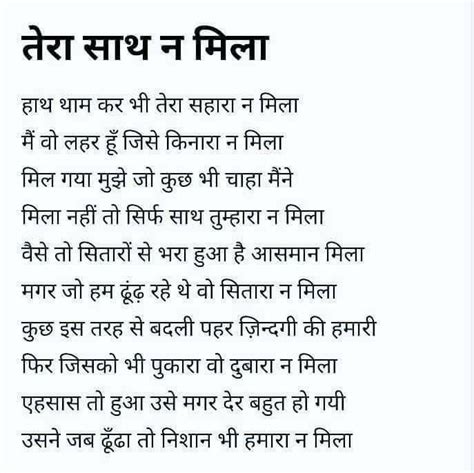 तेरा साथ न मिला
हाथ थाम कर भी तेरा सहारा न मिला
मैं वो लहर हूँ जिसे किनारा न मिला
मिल गया मुझे जो कुछ भी चाहा मैंने
मिला नहीं तो सिर्फ साथ तुम्हारा न मिला
वैसे तो सितारों से भरा हुआ है आसमान मिला
मगर जो हम ढूंढ़ रहे थे वो सितारा न मिला
कुछ इस तरह से बदली पहर ज़िन्दगी की हमारी
फिर जिसको भी पुकारा वो दुबारा न मिला
एहसास तो हुआ उसे मगर देर बहुत हो गयी
उसने जब ढूँढा तो निशान भी हमारा न मिला